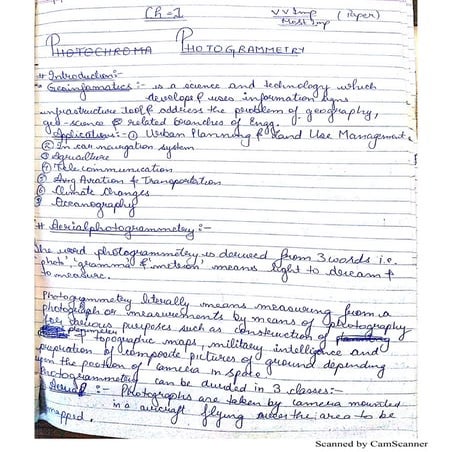 Ch-1
V V Imp (Paper)
Most Imp
PHOTOCHROMA PHOTOGRAMMETRY
# Introduction:-
Geoinfomatics:- is a science and technology which
develope & uses information
infrastructure to address the problem of geography,
geo-science & related branches of Engg.
Applications:- ① Urban Planning & Land Use Management.
② In car navigation system
③ Aguculture
④ Tele communication
⑤ Aviation & Transportation
⑥ Climate Changes
⑦ Oceanography
# Aerialphotogrammetry:-
The word photogrammetry is derived from 3 words i.e.
'phot', 'gramma' & 'metrion', means light to &
to measure.
Photogrammetry literally means measuring from a
photograph or measurements by means of photography
for various purposes such as construction of
topographic maps, military intelligence and
preparation of composite pictures of ground depending
upon the position of camera in space.
Photogrammetry can be divided in 3 classes:-
Aerial:- Photographs are taken by camera mounted
in a aircraft flying over the area to be
mapped.
Scanned by CamScanner